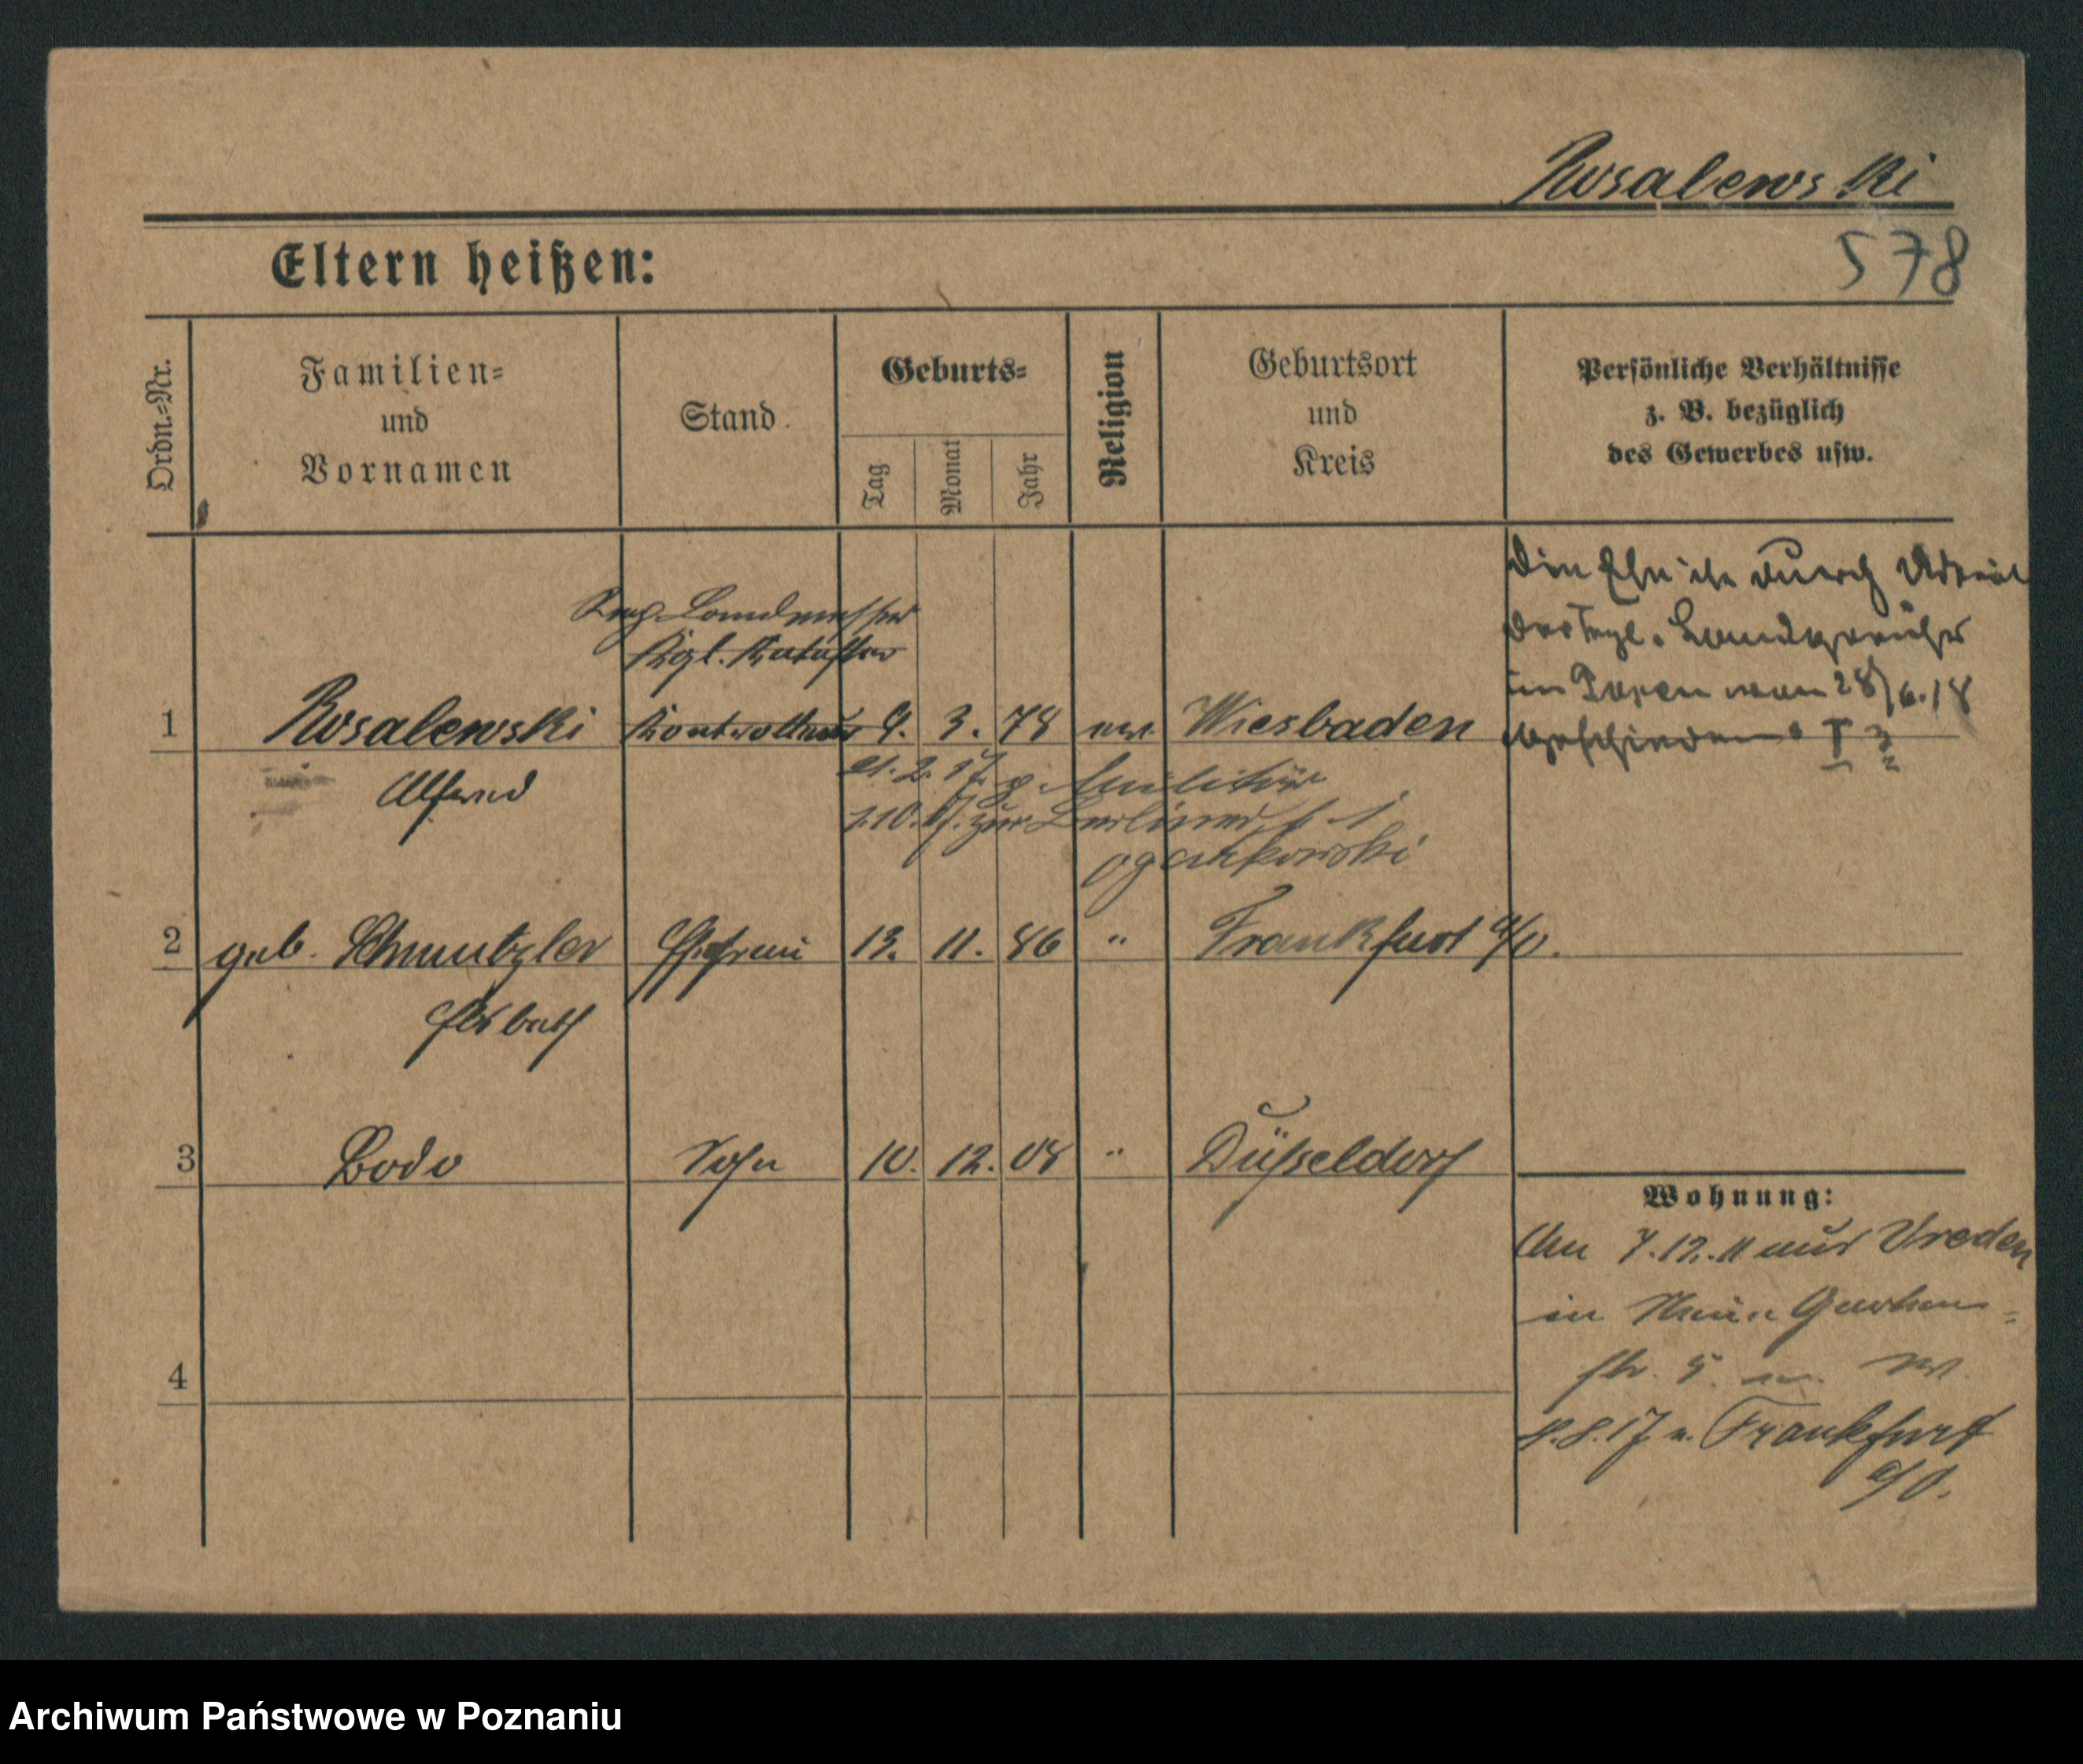 Rosalewski
578
Eltern heißen:
Ordn.-Nr.
Familien- und Vornamen
Stand.
Geburts-
Tag
Monat
Jahr
Religion
Geburtsort und Kreis
Persönliche Verhältnisse z. B. bezüglich des Gewerbes usw.
Landmesser
Kgl. Kataster
1 Rosalewski Kontrolleur 9. 3. 78 ev. Wiesbaden
Alfred
21. 2. 17 z. Militär
1.10.17. zur Berliner
Die Ehe ist durch Urteil
des Kgl. Landgerichts
in Posen vom 28/6.18
geschieden. I
2 geb. Schmutzler Ehefrau 13. 11. 86 " Frankfurt a/O.
Elsbeth
3 Bodo Sohn 10. 12. 08 " Düsseldorf
4
Wohnung:
Am 7.12.11 aus Vreden
in
str. 5.
8.17 n. Frankfurt
a/O.
Archiwum Państwowe w Poznaniu